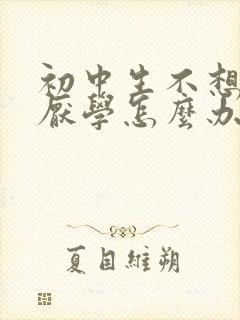 初中生不想
厭學怎麼办
夏目維朔